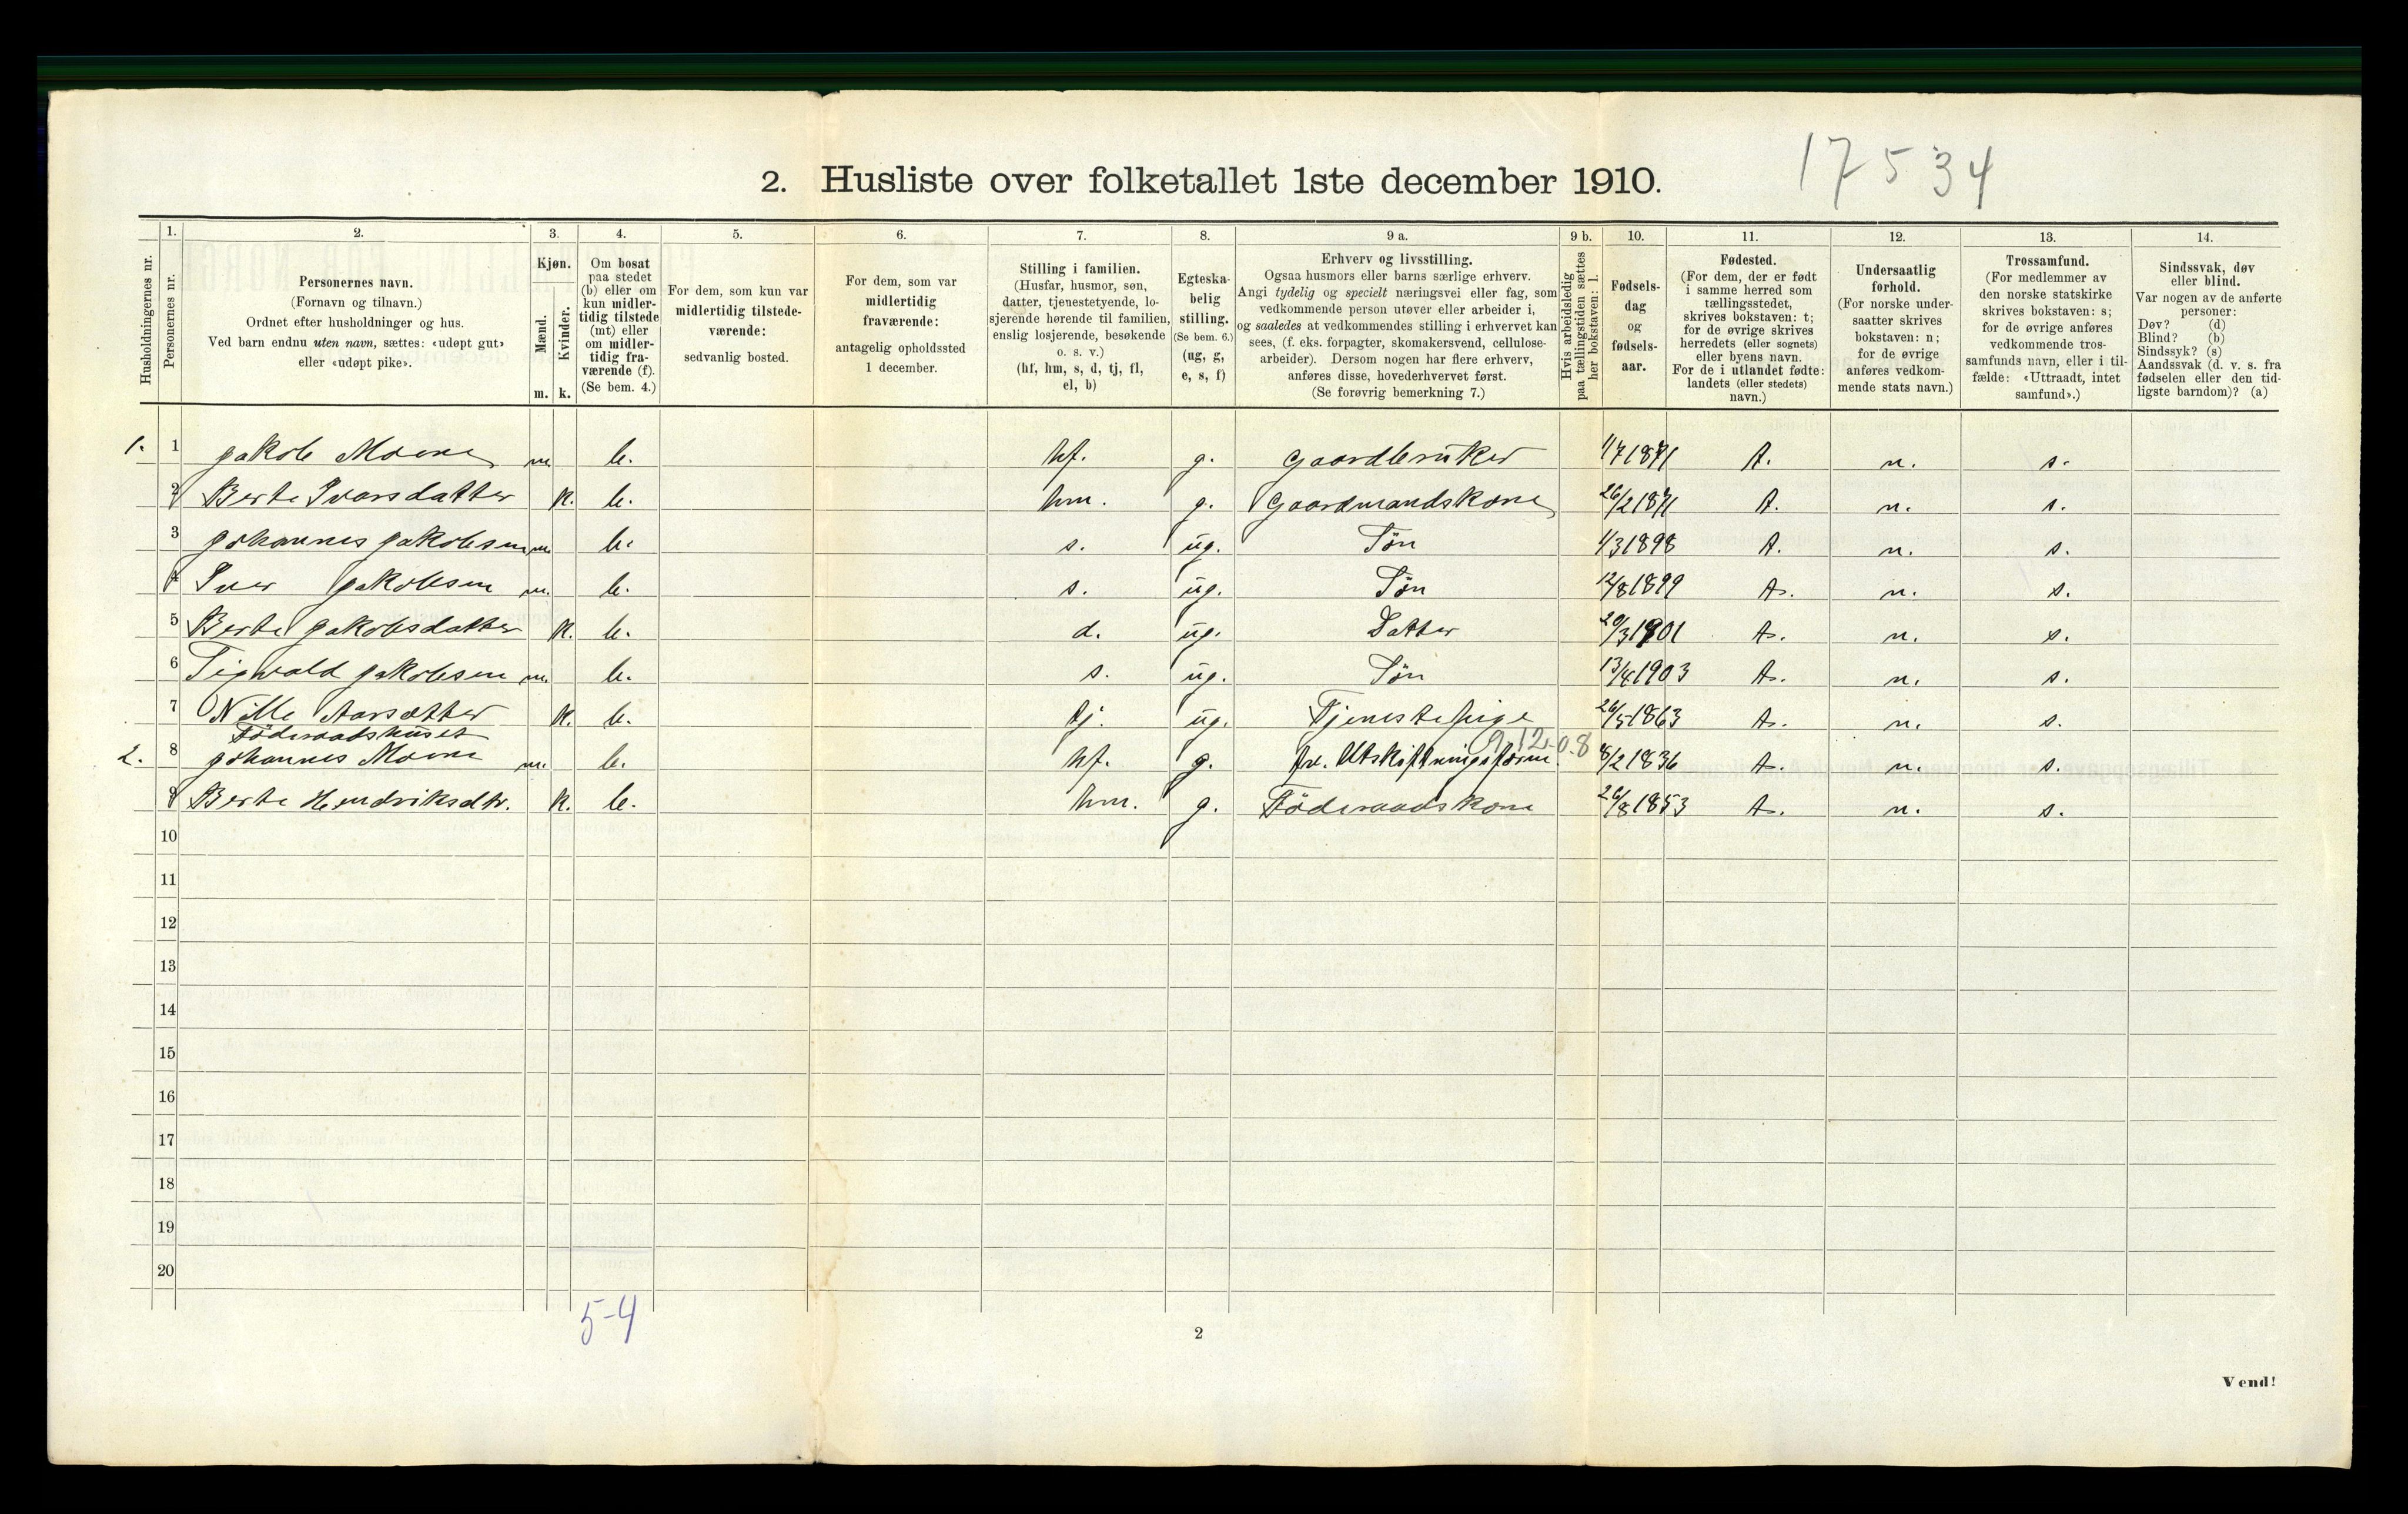 17534
2. Husliste over folketallet 1ste december 1910.
Husholdningernes nr.
1.
Personernes nr.
2.
Personernes navn.
(Fornavn og tilnavn.)
Ordnet efter husholdninger og hus.
Ved barn endnu uten navn, sættes: «udøpt gut»
eller «udøpt pike».
3.
Kjøn.
Mænd.
Kvinder.
m. k.
4.
Om bosat
paa stedet
(b) eller om
kun midler-
tidig tilstede
(mt) eller
om midler-
tidig fra-
værende (f).
(Se bem. 4.)
5.
For dem, som kun var
midlertidig tilstede-
værende:
sedvanlig bosted.
6.
For dem, som var
midlertidig
fraværende:
antagelig opholdssted
1 december.
7.
Stilling i familien.
(Husfar, husmor, søn,
datter, tjenestetyende, lo-
sjerende hørende til familien,
enslig losjerende, besøkende
o. s. v.)
(hf, hm, s, d, tj, fl,
el, b)
8.
Egteska-
belig
stilling.
(Se bem. 6.)
(ug, g,
e, s, f)
9 a.
Erhverv og livsstilling.
Ogsaa husmors eller barns særlige erhverv.
Angi tydelig og specielt næringsvei eller fag, som
vedkommende person utøver eller arbeider i,
og saaledes at vedkommendes stilling i erhvervet kan
sees, (f. eks. forpagter, skomakersvend, cellulose-
arbeider). Dersom nogen har flere erhverv,
anføres disse, hovederhvervet først.
(Se forøvrig bemerkning 7.)
9 b.
Hvis arbeidsledig
paa tællingstiden sættes
her bokstaven: l.
10.
Fødsels-
dag
og
fødsels-
aar.
11.
Fødested.
(For dem, der er født
i samme herred som
tællingsstedet,
skrives bokstaven: t;
for de øvrige skrives
herredets (eller sognets)
eller byens navn.
For de i utlandet fødte:
landets (eller stedets)
navn.)
12.
Undersaatlig
forhold.
(For norske under-
saatter skrives
bokstaven: n;
for de øvrige
anføres vedkom-
mende stats navn.)
13.
Trossamfund.
(For medlemmer av
den norske statskirke
skrives bokstaven: s;
for de øvrige anføres
vedkommende tros-
samfunds navn, eller i til-
fælde: «Uttraadt, intet
samfund».)
14.
Sindssvak, døv
eller blind.
Var nogen av de anførte
personer:
Døv? (d)
Blind? (b)
Sindssyk? (s)
Aandssvak (d. v. s. fra
fødselen eller den tid-
ligste barndom)? (a)
1. 1 Jakob Moene m. b. hf. g. Gaardbruker 1/7 1871 t. n. s.
2 Berte Ivarsdatter k. b. hm. g. Gaardmandskone 26/2 1871 t. n. s.
3 Johannes Jakobsen m. b. s. ug. Søn 1/3 1898 t. n. s.
4 Iver Jakobsen m. b. s. ug. Søn 12/8 1899 t. n. s.
5 Berte Jakobsdatter k. b. d. ug. Datter 20/3 1901 t. n. s.
6 Sigvald Jakobsen m. b. s. ug. Søn 13/4 1903 t. n. s.
7 Nille k. b. tj. ug. Tjenestepige 26/5 1863 t. n. s.
Föderaadshuset
9.12.0.8
2. 8 Johannes Moene m. b. hf. g. fv. Utskiftningsform. 8/2 1836 t. n. s.
9 Berte Hendriksdtr. k. b. hm. g. Föderaadskone 26/8 1853 t. n. s.
10
11
12
13
14
15
16
17
18
19
20
5-4
2
Vend!